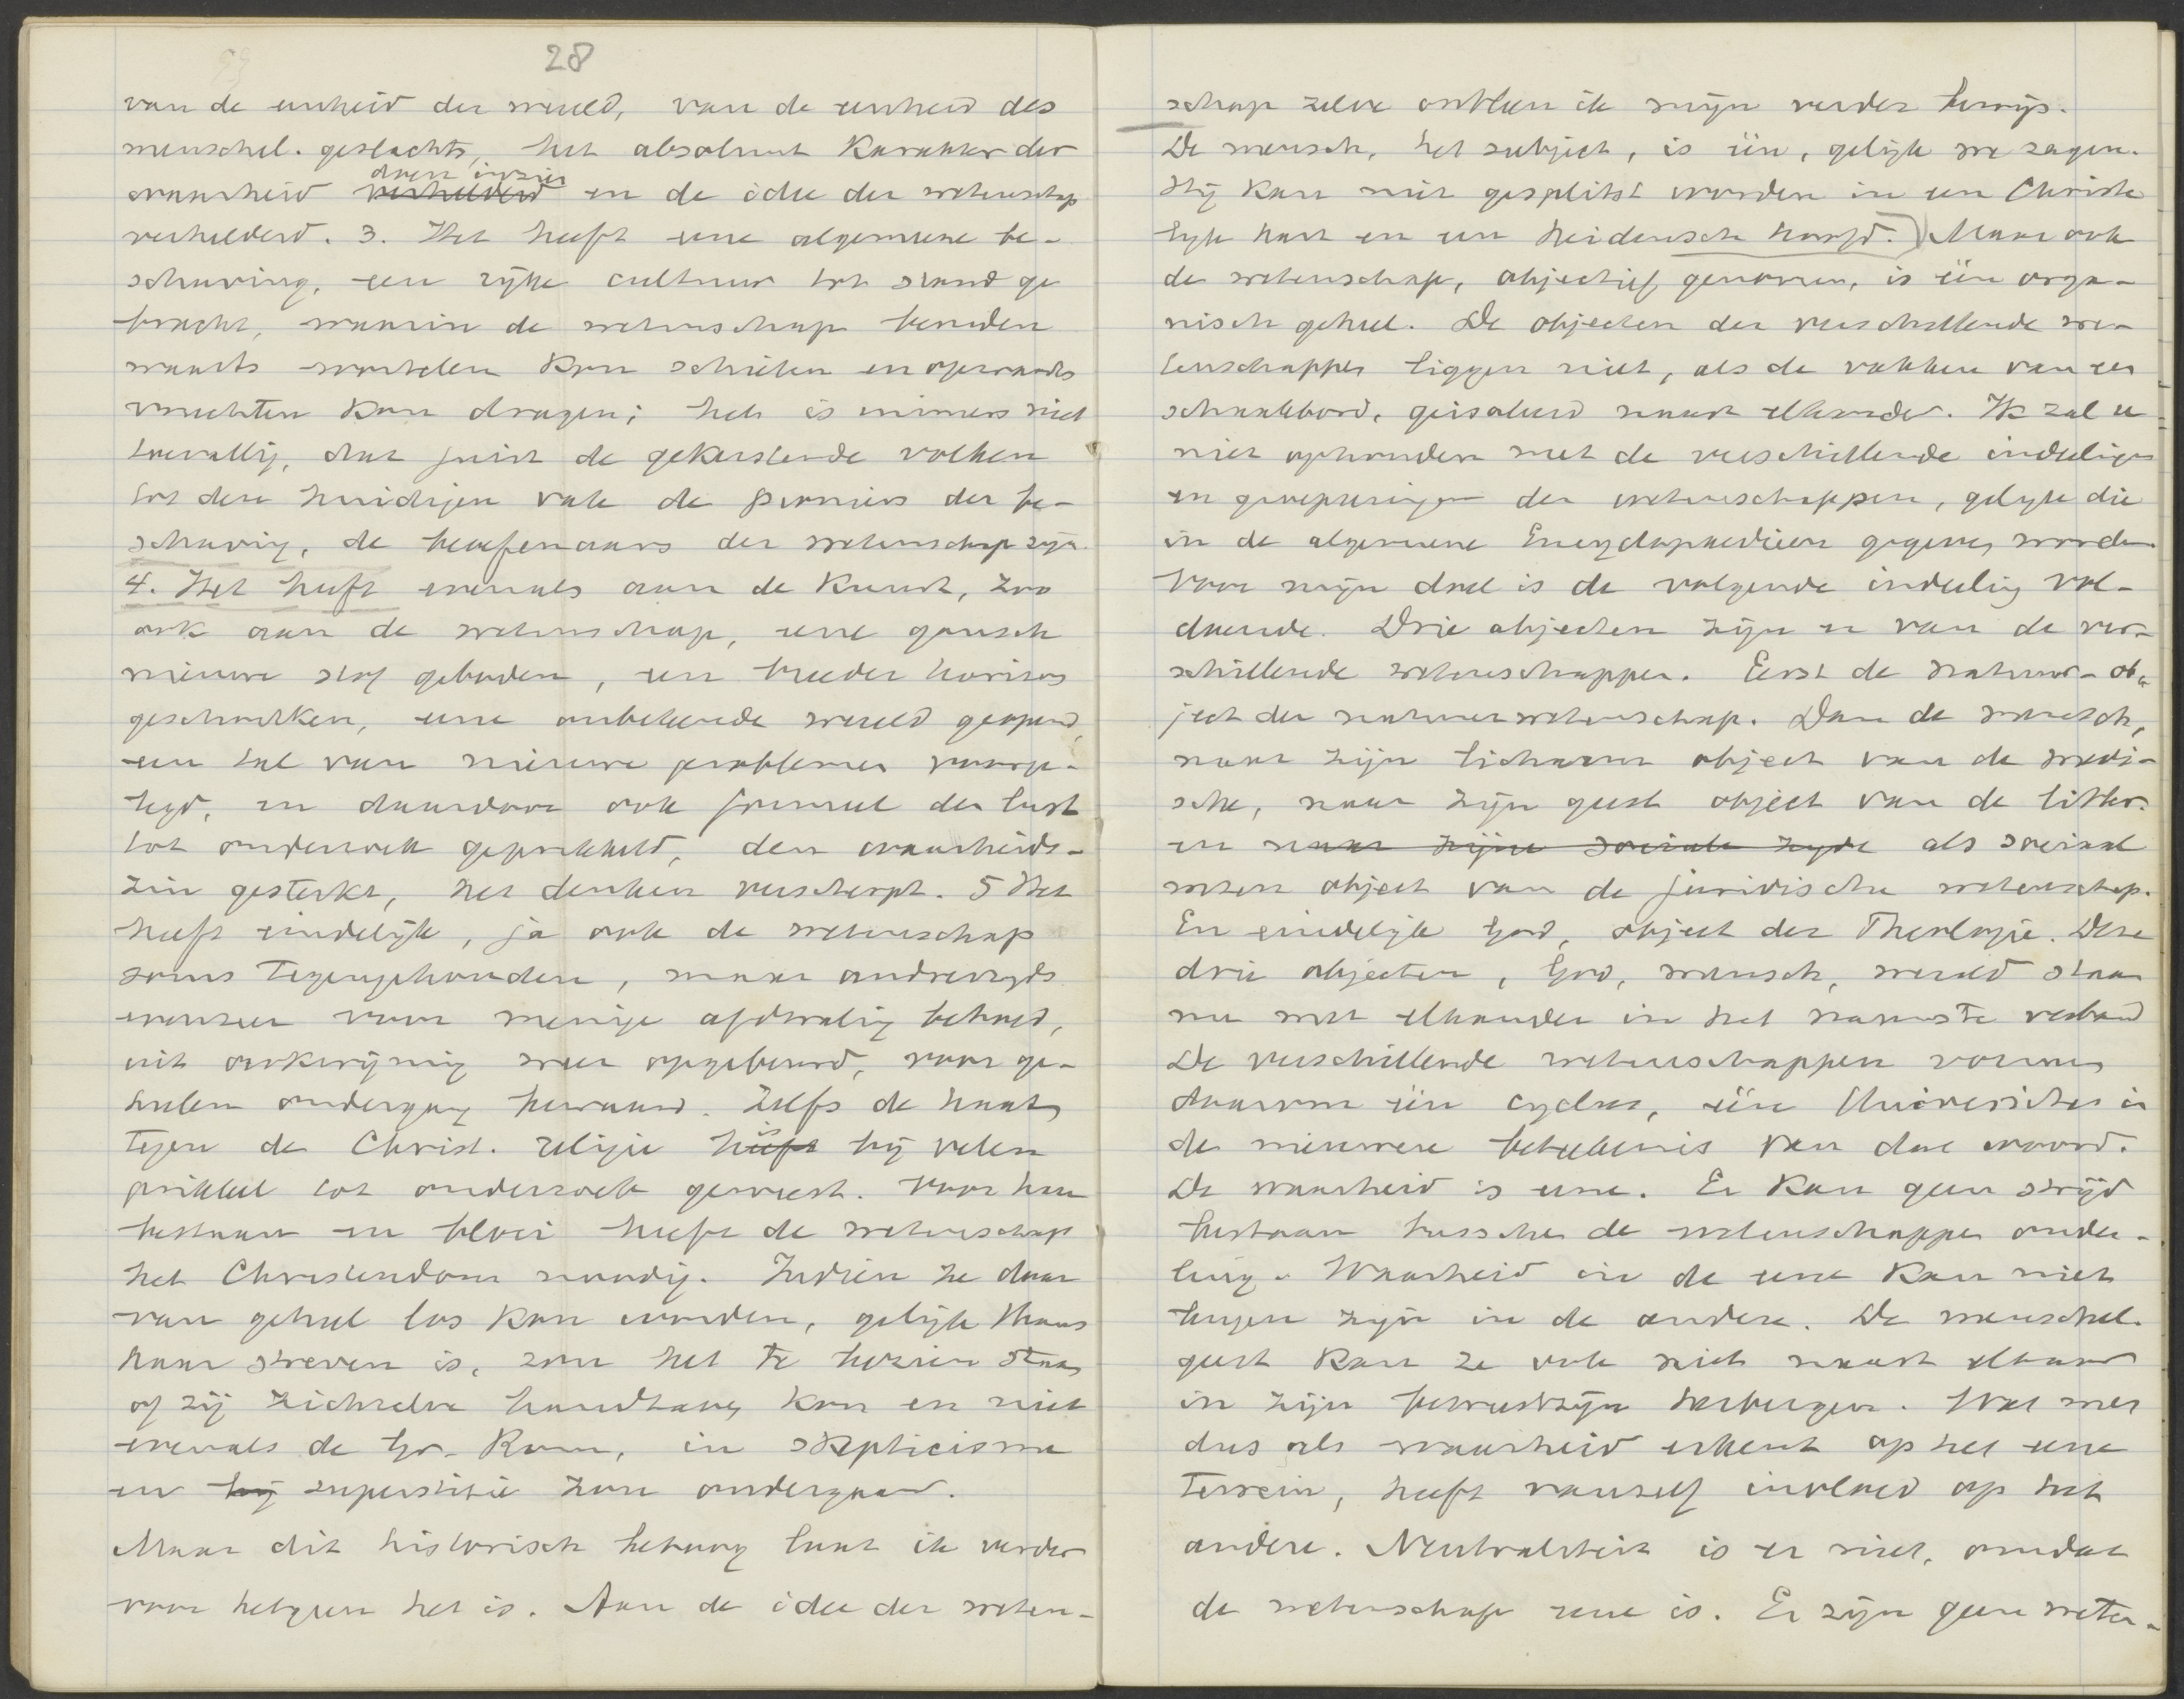 28
van de eenheid der wereld, van de eenheid des
menschel. geslachts, het absoluut karakter der
waarheid doen inzien verhelderd en de idee der wetenschap
verhelderd. 3. Het heeft eene algemeene be-
schaving, een rijke cultuur tot stand ge
bracht, waarin de wetenschap beneden
waarts wortelen kon schieten en opwaarts
vruchten kon dragen; het is immers niet
toevallig, dat juist de gekerstende volken
tot den huidigen dag de pioniers der be-
schaving, de beoefenaars der wetenschap zijn.
4. Het heeft evenals aan de Kunst, zoo
ook aan de wetenschap, eene gansch
nieuwe stof geboden, een breeder horizon
geschonken, eene onbekende wereld geopend,
een tal van nieuwe problemen voorge-
legd, en daardoor ook formeel den lust
tot onderzoek geprikkeld, den waarheids-
zin gesterkt, het denken verscherpt. 5 Het
heeft eindelijk, ja ook de wetenschap
soms tegengehouden, maar anderzijds
evenzeer voor menige afdwaling behoed,
uit wegkwijning weer opgebeurd, voor ge-
heelen ondergang bewaard. Zelfs de haat
tegen de Christ. religie heeft is bij velen
prikkel tot onderzoek geweest. Voor haar
bestaan en bloei heeft de wetenschap
het Christendom noodig. Indien ze daar
van geheel los kon worden, gelijk thans
haar streven is, zou het te bezien staan
of zij zichzelve handhaven kon en niet
evenals de Gr. Rom, in skepticisme
en bij superstitie zou ondergaan.
Maar dit historisch betoog laat ik verder
voor hetgeen het is. Aan de idee der weten-
schap zelve ontleen ik mijn verder bewijs.
De mensch, het subject, is één, gelijk we zagen.
Hij kan niet gesplitst worden in een Christe
lijk hart en een heidensch hoofd.) Maar ook
de wetenschap, objectief genomen, is één orga-
nisch geheel. De objecten der verschillende we-
tenschappen liggen niet, als de vakken van een
schaakbord, geisoleerd naast elkander. Ik zal u
niet ophouden met de verschillende indeelingen
en groepeeringen der wetenschappen, gelijk die
in de algemeene Encyclopaedieen gegeven worden.
Voor mijn doel is de volgende indeeling vol-
doende. Drie objecten zijn er van de ver-
schillende wetenschappen. Eerst de natuur- ob-
ject der natuurwetenschap. Dan de mensch,
naar zijn lichaam object van de medi-
sche, naar zijn geest object van de litter.
en naar zijne sociale zyde als sociaal
wezen object van de juridische wetenschap.
En eindelijk God, object der Theologie. Deze
drie objecten, God, mensch, wereld staan
nu met elkander in het nauwste verband
De verschillende wetenschappen vormen
daarom één cyclus, eéne Universitas in
de nieuwere beteekenis van dat woord.
De waarheid is eene. Er kan geen strijd
bestaan tusschen de wetenschappen onder-
ling. Waarheid in de eene kan niet
leugen zijn in de andere. De menschel.
geest kan ze ook niet naast elkaar
in zijn bewustzijn herbergen. Wat men
dus als waarheid erkent op het eene
terrein, heeft vanzelf invloed op het
andere. Neutraliteit is er niet, omdat
de wetenschap eene is. Er zijn geen weten-